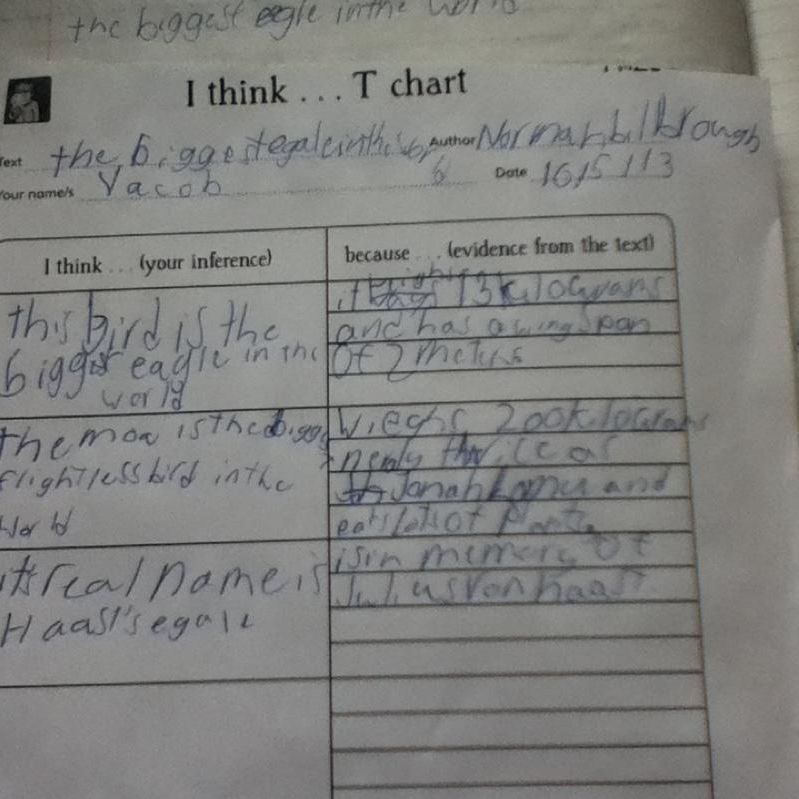 the biggest eagle in the world
I think ... T chart
Text the biggest egale in the Author Norman bilbrough
Your name/s Yacob Date 16/5/13
I think ... (your inference)
because ... (evidence from the text)
this bird is the
biggest eagle in the
world
it 13 kilograms
and has a wing span
Of 2 meters
the moa is the bigge
flightless bird in the
World
Wieghs 200 kilograms
nerly thrice as
Jonah Lomu and
eats lots of plants
its real name is
Haast's egale
is in memory of
Julius von haast